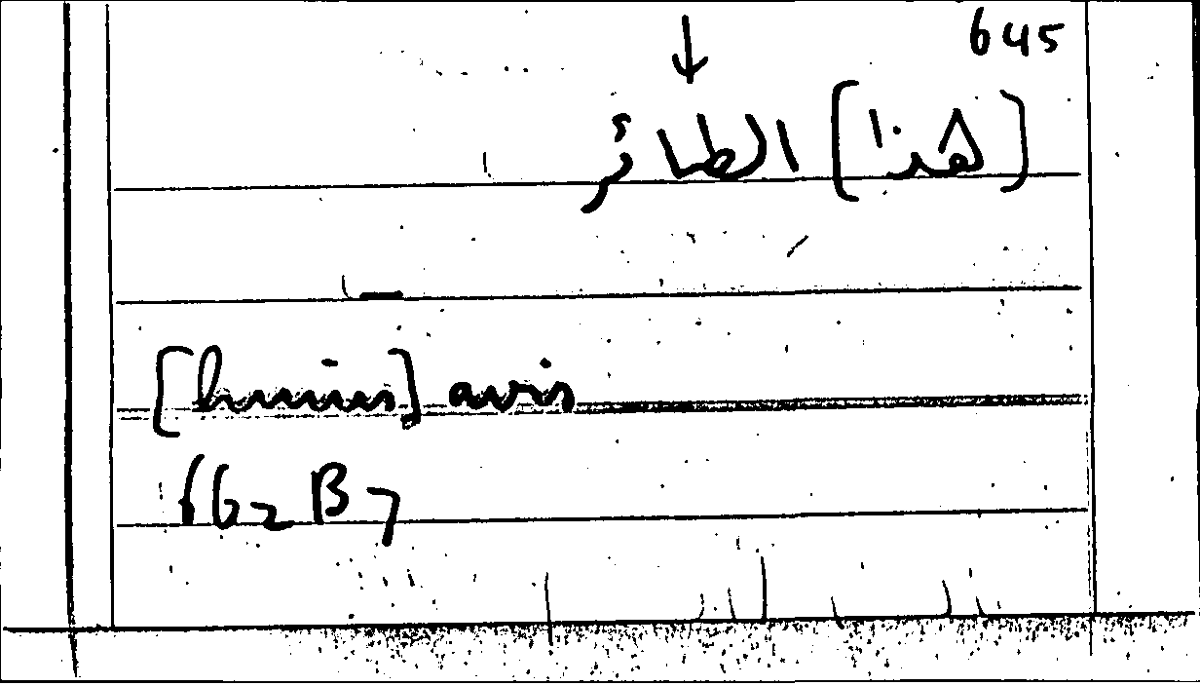 645
↓
[هذا] الطائر
[huius] avis
662 B 7